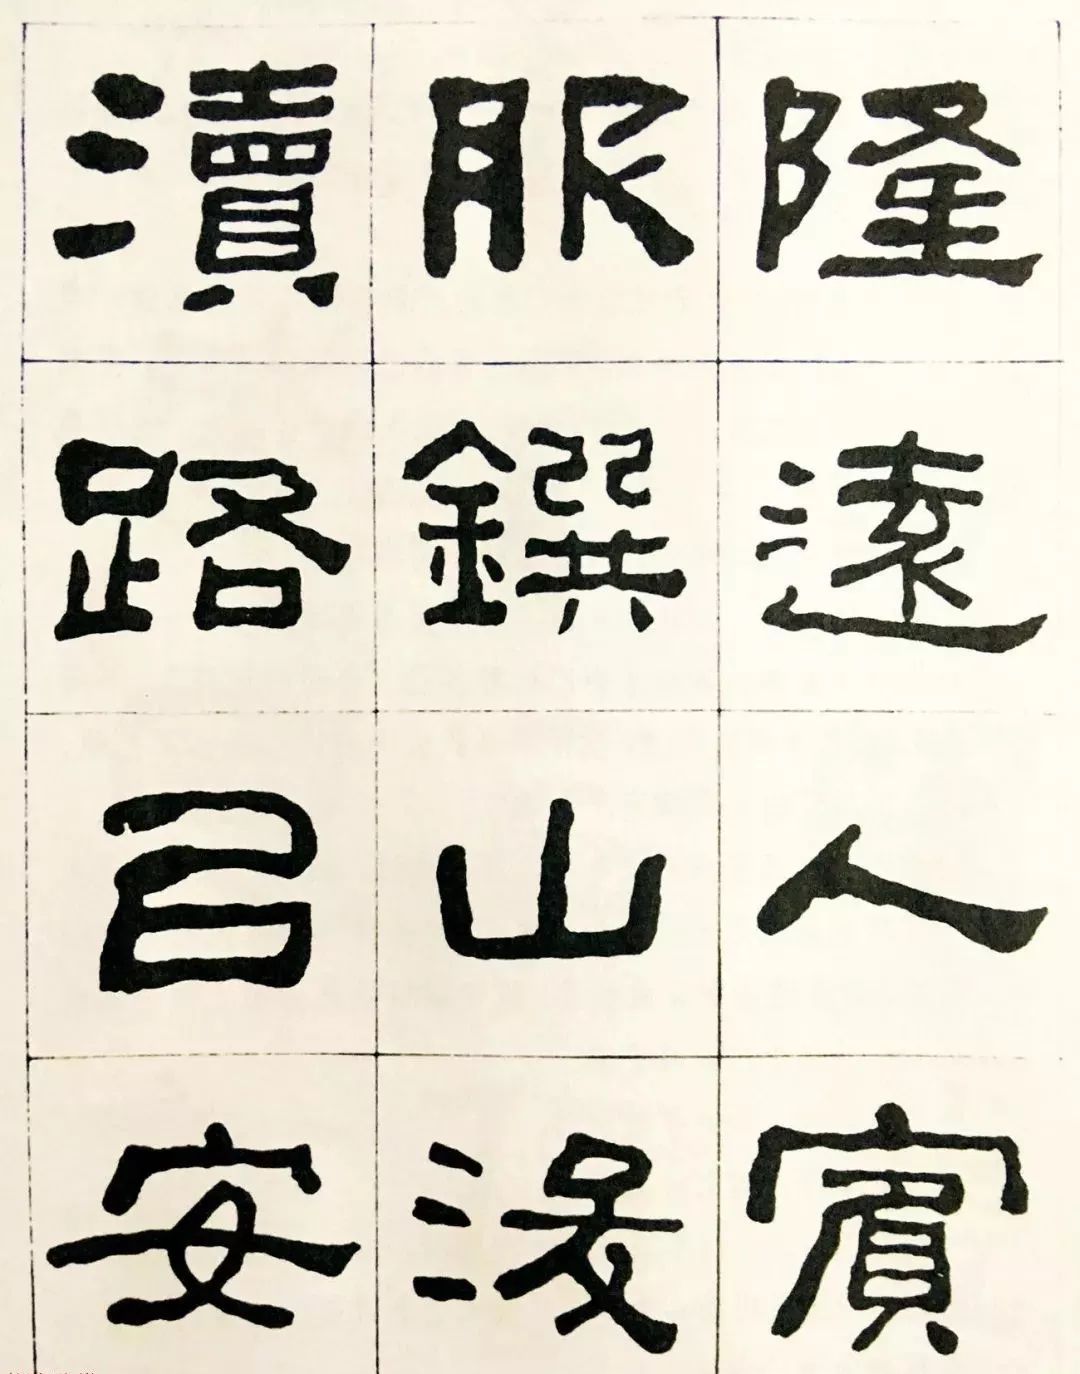 隆遠人賓
服鐉山浚
瀆路㠯安